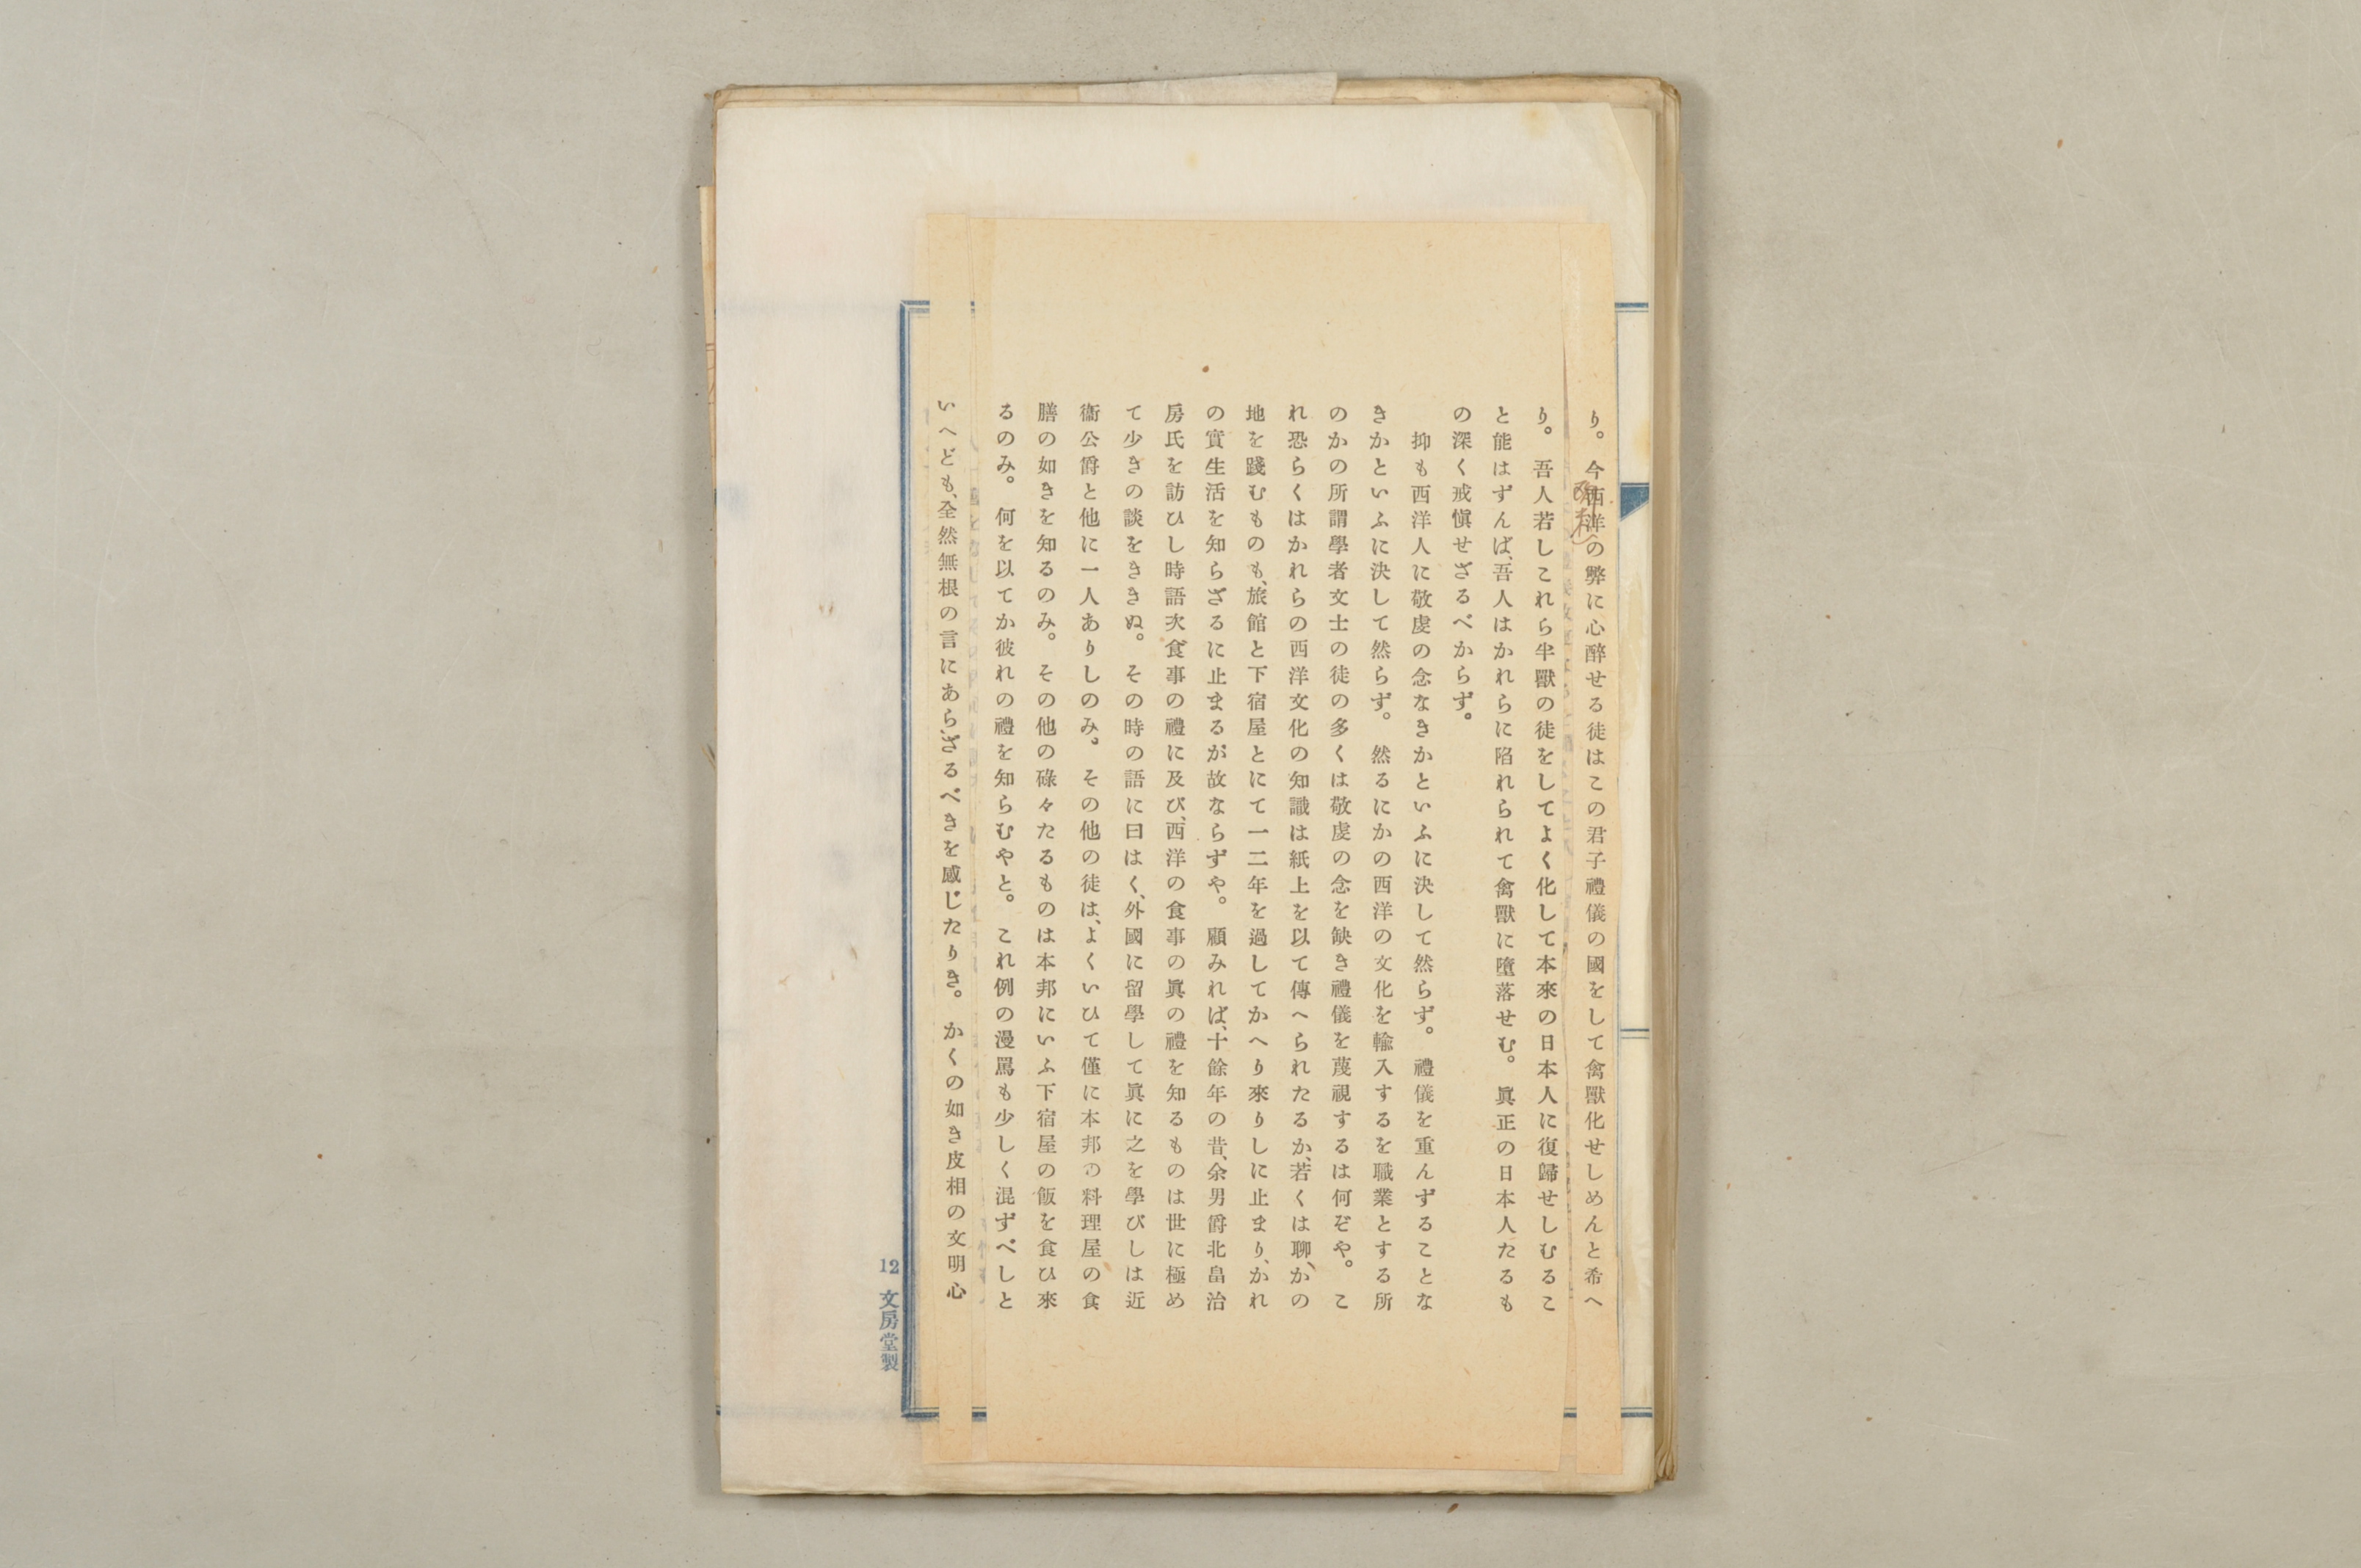 り。今西洋の弊に心醉せる徒はこの君子禮儀の國をして禽獸化せしめんと希へ
り。吾人若しこれら半獸の徒をしてよく化して本來の日本人に復歸せしむるこ
と能はずんば、吾人はかれらに陷れられて禽獸に墮落せむ。眞正の日本人たるも
の深く戒愼せざるべからず。
抑も西洋人に敬虔の念なきかといふに決して然らず。禮儀を重んずることな
きかといふに決して然らず。然るにかの西洋の文化を輸入するを職業とする所
のかの所謂學者文士の徒の多くは敬虔の念を缺き禮儀を蔑視するは何ぞや。こ
れ恐らくはかれらの西洋文化の知識は紙上を以て傳へられたるか、若くは聊、かの
地を踐むものも、旅館と下宿屋とにて一二年を過してかへり來りしに止まり、かれ
の實生活を知らざるに止まるが故ならずや。顧みれば、十餘年の昔、余男爵北畠治
房氏を訪ひし時語次食事の禮に及び、西洋の食事の眞の禮を知るものは世に極め
て少きの談をききぬ。その時の語に曰はく、外國に留學して眞に之を學びしは近
衞公爵と他に一人ありしのみ。その他の徒は、よくいひて僅に本邦の料理屋の食
膳の如きを知るのみ。その他の碌々たるものは本邦にいふ下宿屋の飯を食ひ來
るのみ。何を以てか彼れの禮を知らむやと。これ例の漫罵も少しく混ずべしと
いへども、全然無根の言にあらざるべきを感じたりき。かくの如き皮相の文明心
12 文房堂製